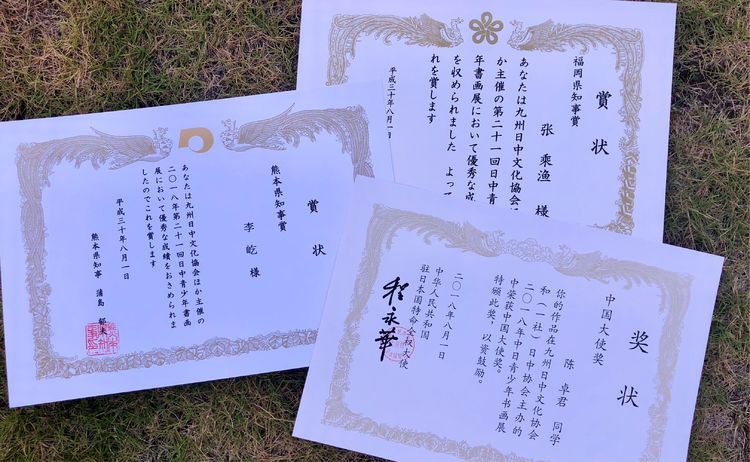 賞状
福岡県知事賞
張 乘渔 様
あなたは九州日中文化協会ほ
か主催の第二十一回日中青
年書画展において優秀な成
を収められました よって
れを賞します
平成三十年八月一日
賞状
熊本県知事賞
李屹 様
あなたは九州日中文化協会ほか主催の
二〇一八年第二十一回日中青少年書画
展において優秀な成績をおさめられま
したのでこれを賞します
平成三十年八月一日
熊本県知事 蒲島 郁夫
奖状
中国大使奖
陈卓君 同学
你的作品在九州日中文化协会
和(一社)日中协会主办的
二〇一八年中日青少年书画展
中荣获中国大使奖。
特颁此奖,以资鼓励。
二〇一八年八月一日
中华人民共和国
驻日本国特命全权大使
程永華